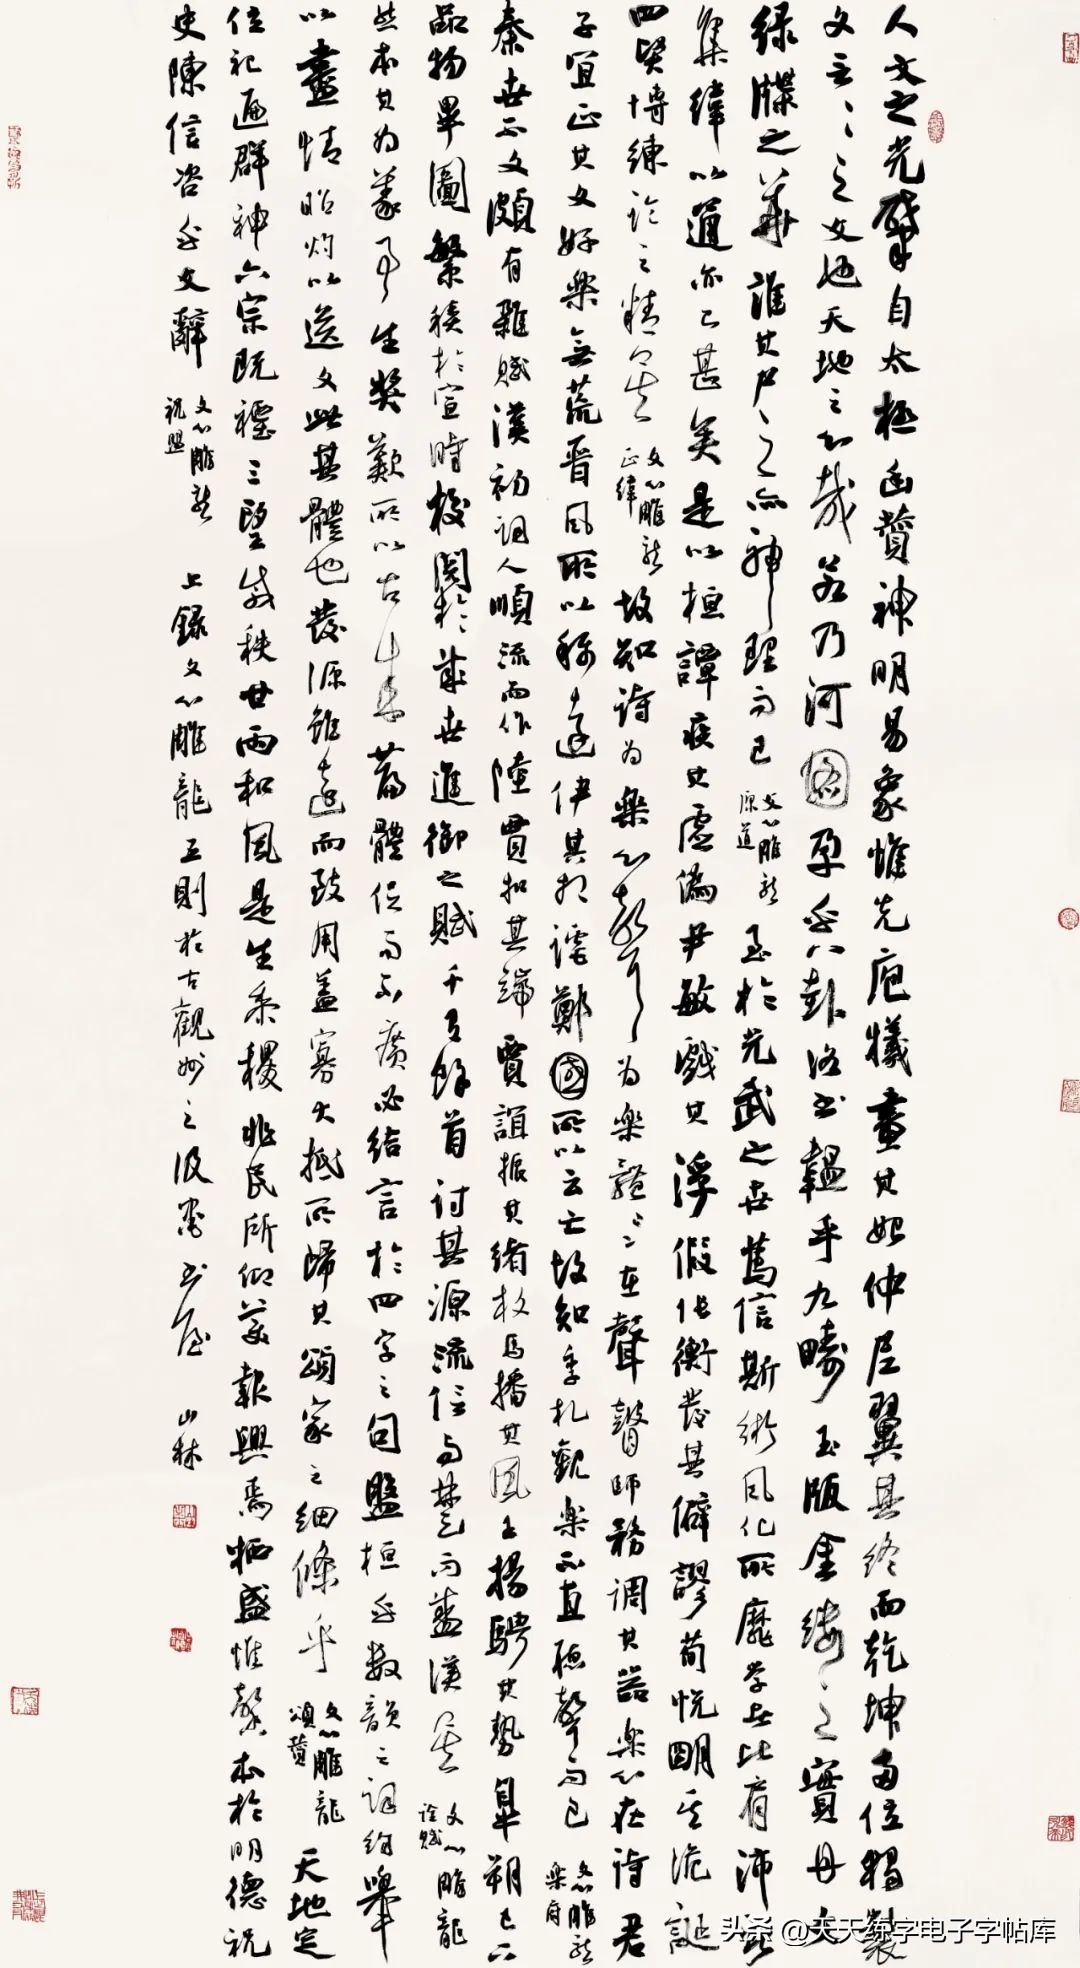 人文之光肇自太極幽贊神明易象惟先庖犧畫其始仲尼翼其終而乾坤兩位獨製
文言言之文也天地之心哉若乃河圖孕乎八卦洛書韞乎九疇玉版金鏤之實丹文
綠牒之華誰其尸之亦神理而已文心雕龍原道至於光武之世篤信斯術風化所靡學者比肩沛獻
集緯以通亦已甚矣是以桓譚疾其虛偽尹敏戲其浮假張衡發其僻謬荀悅明其詭誕
四賢博練論之精矣文心雕龍正緯故知詩為樂心聲為樂體體在聲瞽師務調其器樂心在詩君
子宜正其文好樂無荒晉風所以稱遠伊其相謔鄭國所以云亡故知季札觀樂不直聽聲而已文心雕龍樂府
秦世不文頗有雜賦漢初詞人順流而作陸賈扣其端賈誼振其緒枚馬播其風王揚騁其勢皋朔已下
品物畢圖繁積於宣時校閱於成世進御之賦千有餘首討其源流信興楚而盛漢矣文心雕龍詮賦
然本其為義事生獎歎所以古來篇體促而不廣必結言於四字之句盤桓乎數韻之詞約舉
以盡情昭灼以送文此其體也發源雖遠而致用蓋寡大抵所歸其頌家之細條乎文心雕龍頌贊天地定
位祀遍群神六宗既禋三望咸秩甘雨和風是生黍稷兆民所仰美報興焉犧盛惟馨本於明德祝
史陳信資乎文辭文心雕龍祝盟 上錄文心雕龍五則於古觀妙之汲書屋 山林
头条 @天天练字电子字帖库